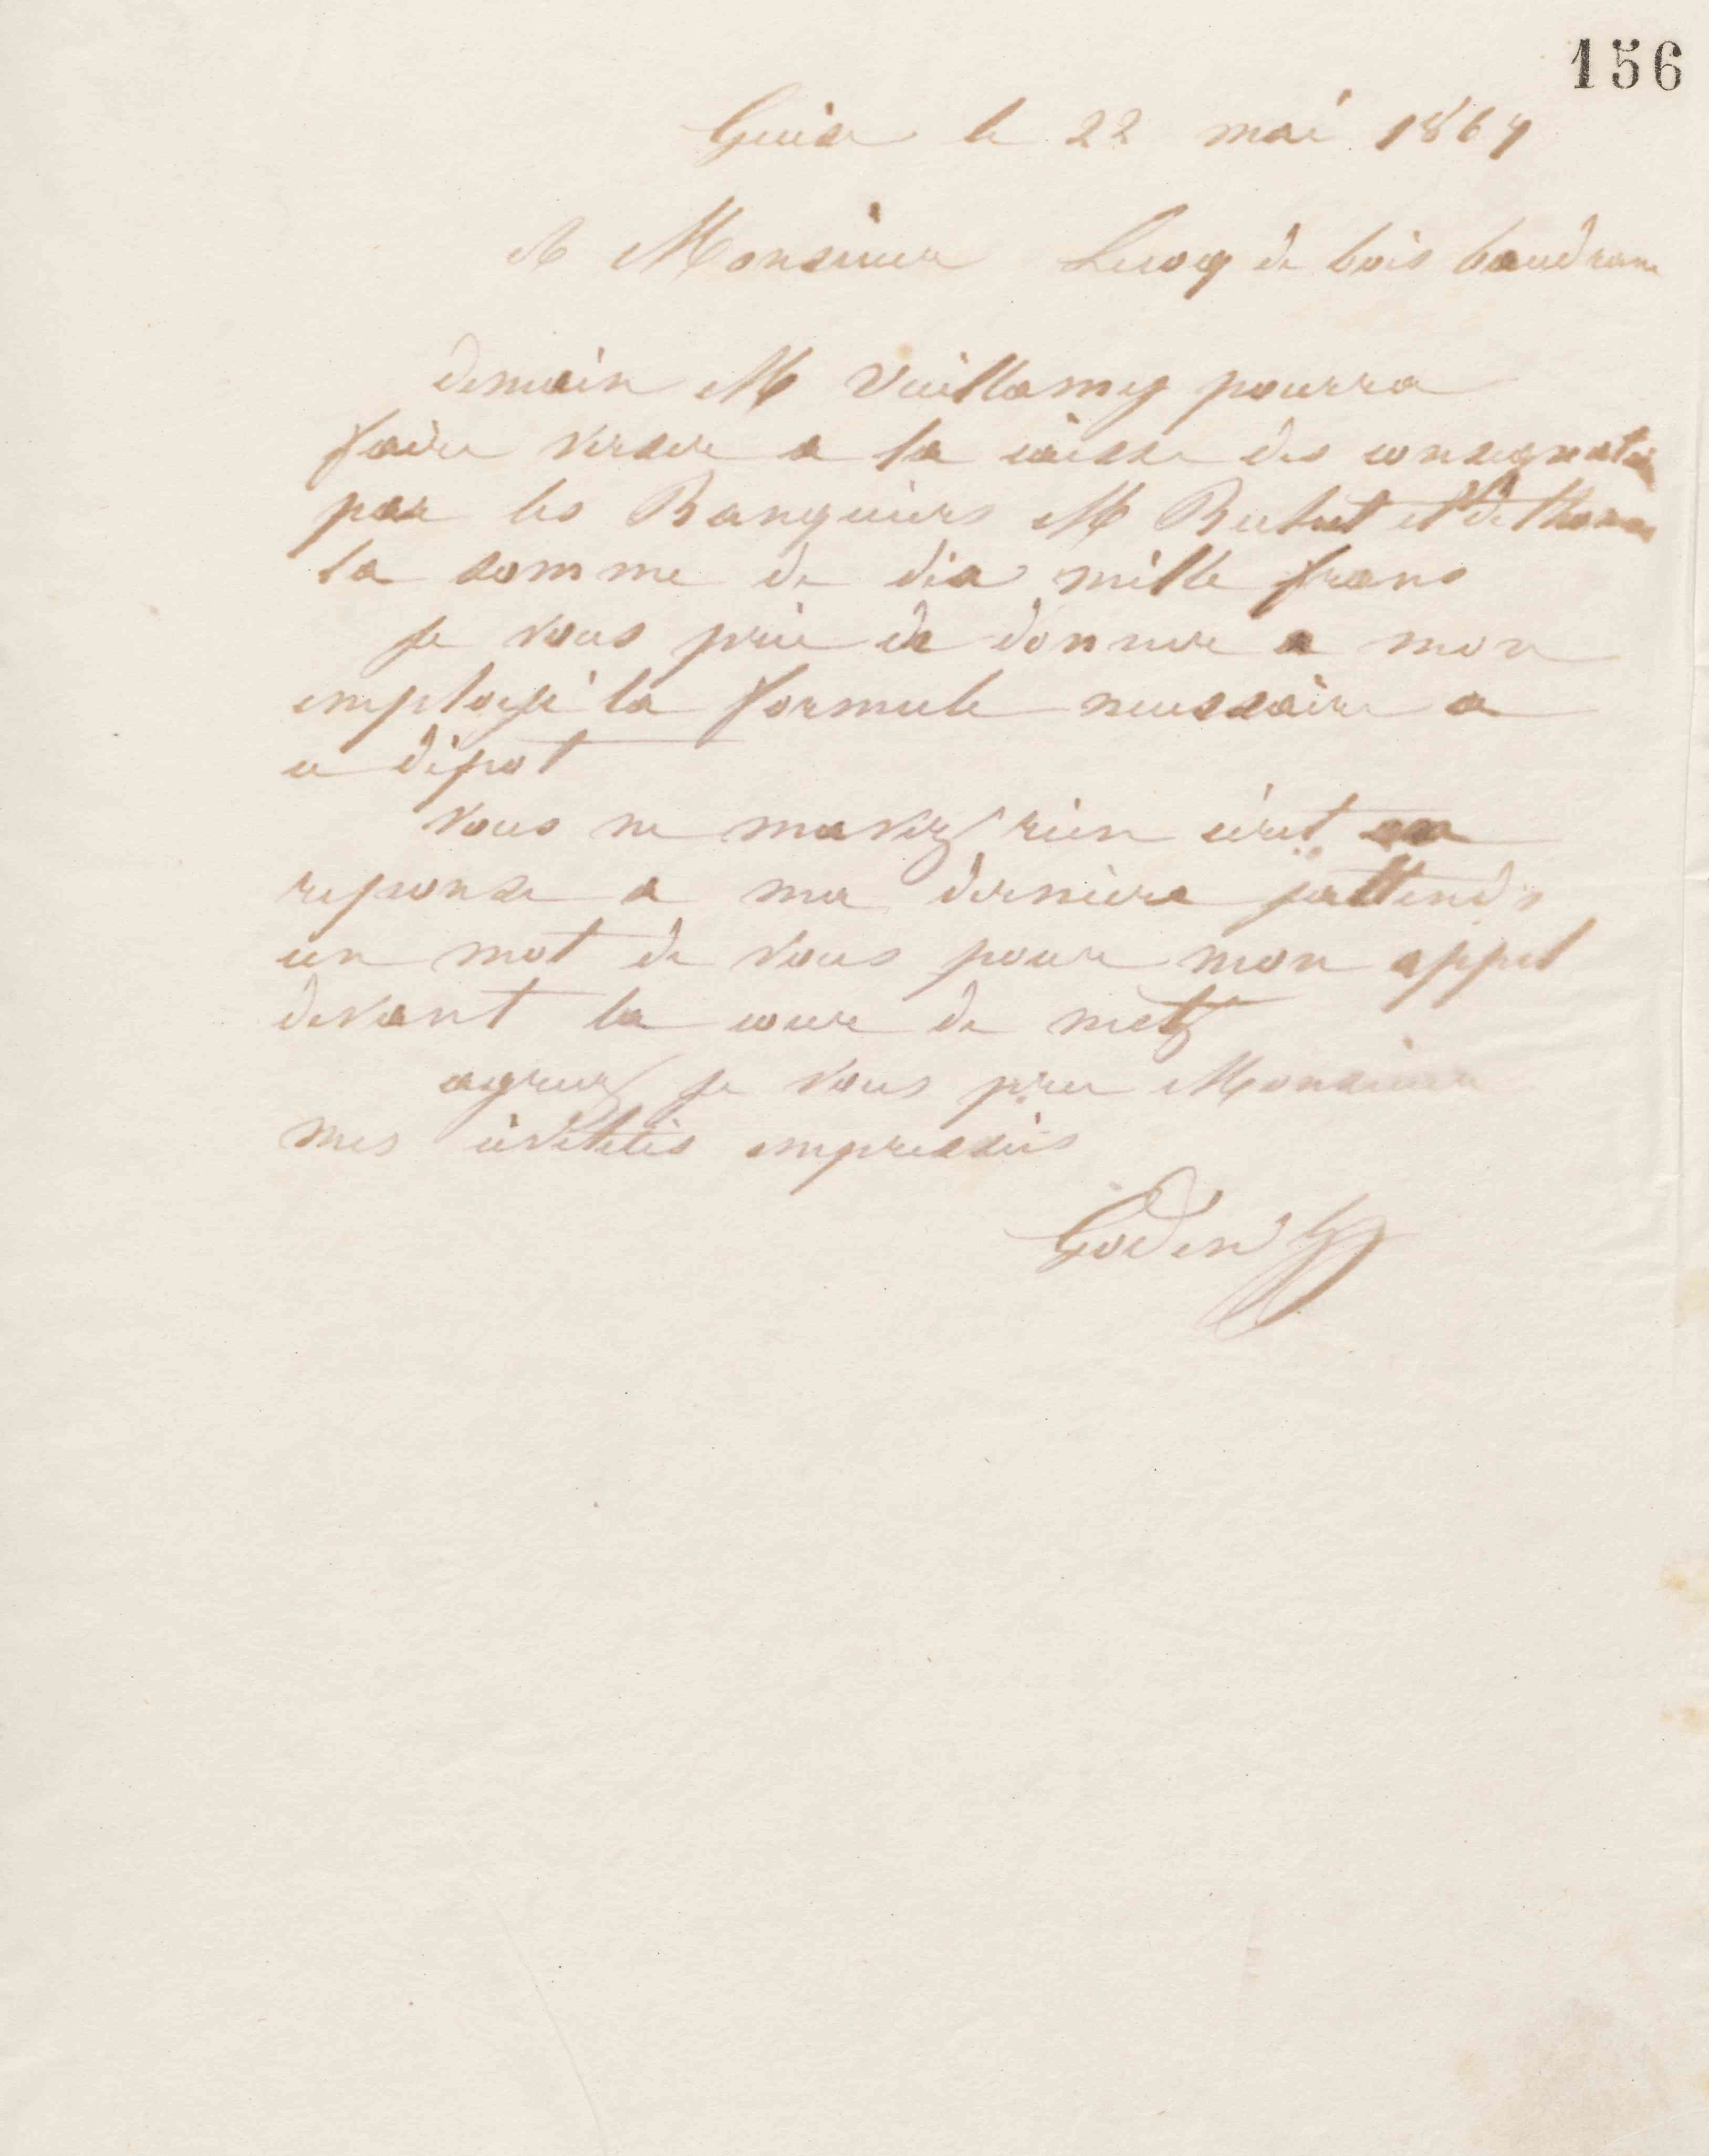 156
Guise le 22 mai 1864
A Monsieur Lecoq de bois baudran
demain M Vuillamy pourra
faire verser a la caisse des consignation
par les Banquiers M Bechet et dethomas
la somme de dix mille frans
je vous prie de donner a mon
employé la formule necessaire a
ce dépot
vous ne mavez rien écrit en
reponse a ma derniere jattends
un mot de vous pour mon appel
devant la cour de metz
agreez je vous prie Monsieur
mes civilités empressées
Godin